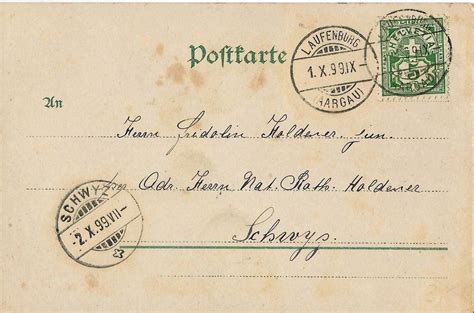 Postkarte
LAUFENBURG
1.X.99.IX-
(AARGAU)
HELVETIA
5
An
Herrn Fridolin Holdener, jun.
per Adr. Herrn Nat. Rath. Holdener
Schwys.
SCHWYZ
2.X.99.VII-